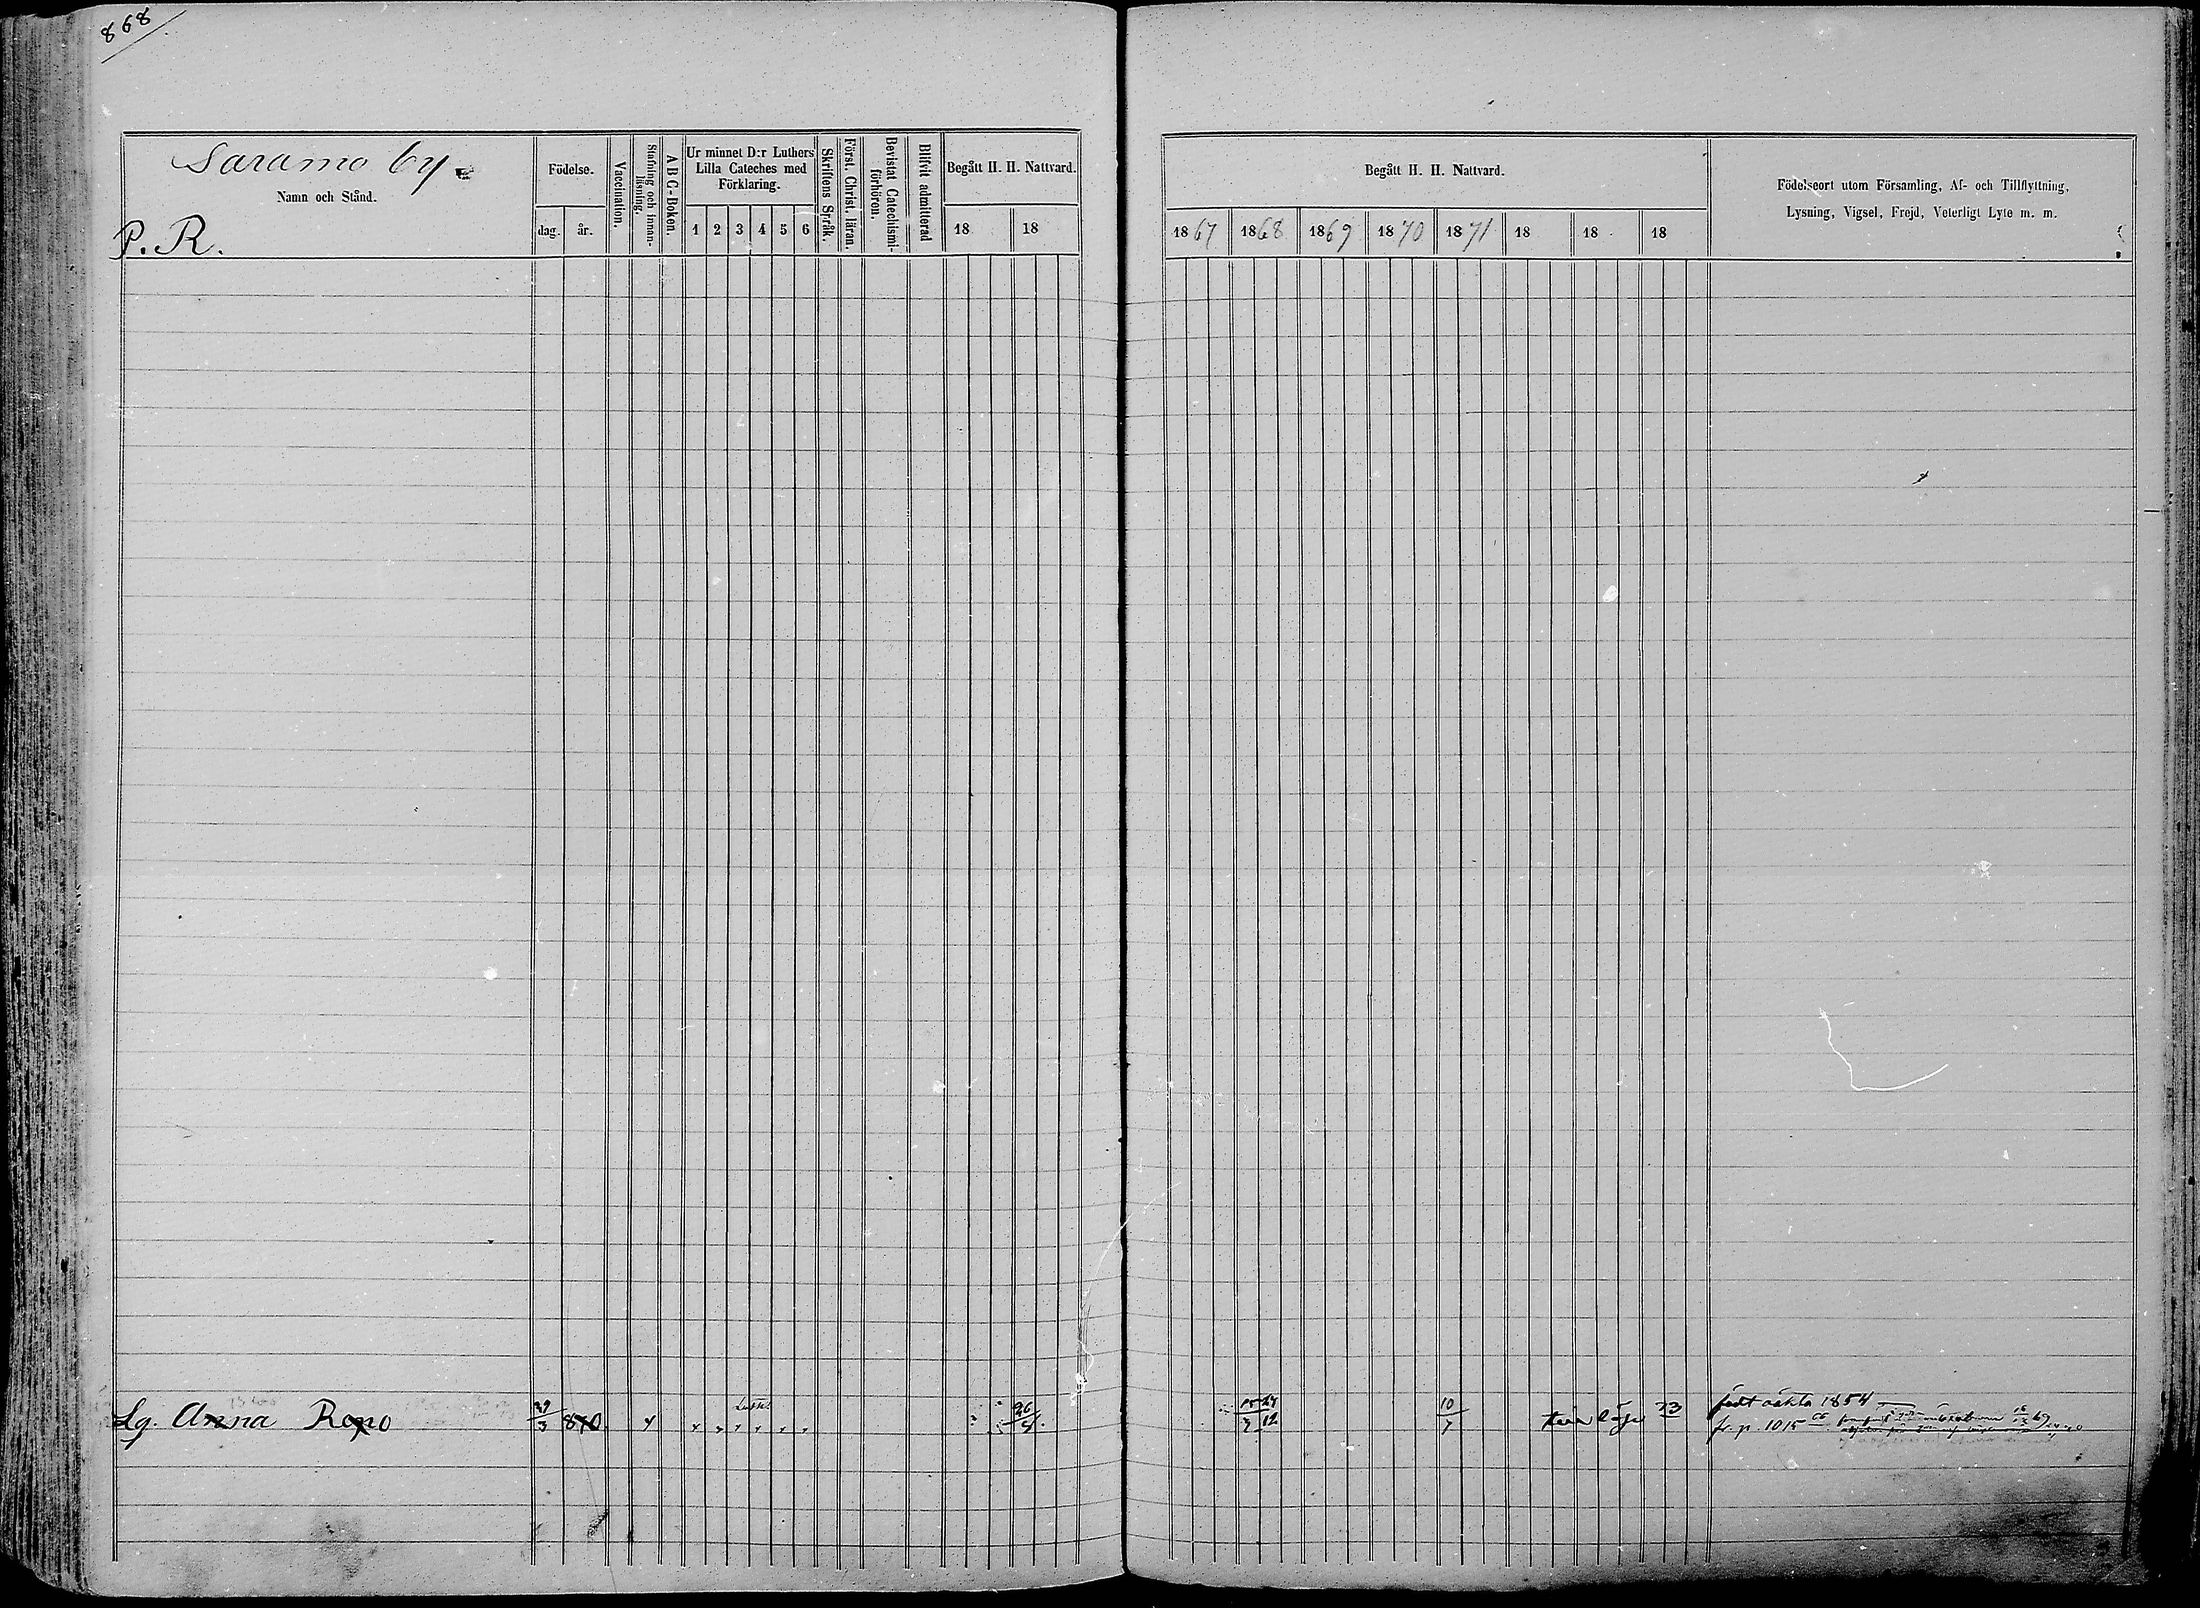 868
Saramo by.
Namn och Stånd.
P. R.
Födelse.
dag. år.
Vaccination.
Stafning och innan-
läsning.
A B C-Boken.
Ur minnet D:r Luthers
Lilla Cateches med
Förklaring.
1 2 3 4 5 6
Skriftens Språk.
Först. Christ. läran.
Bevistat Catechismi-
förhören.
Blifvit admitterad
Begått H. H. Nattvard.
18 18
Begått H. H. Nattvard.
1867 1868 1869 1870 1871 18 18 18
Födelseort utom Församling, Af- och Tillflyttning,
Lysning, Vigsel, Frejd, Veterligt Lyte m. m.
Lg. Anna Repo
29/3 810
26/4
15/7 27/12
10/7
73
födt oäkta 1854
fr. p. 1015